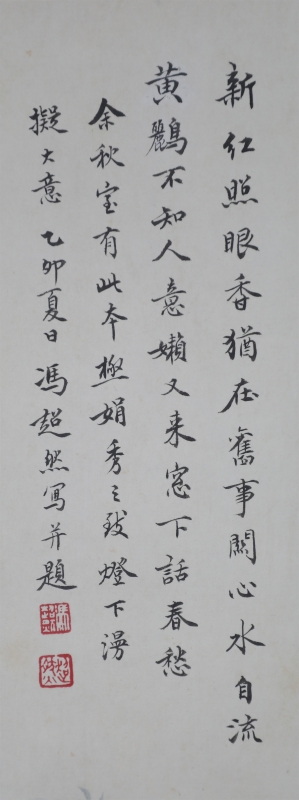 新红照眼香猶在舊事關心水自流
黄鸝不知人意嬾又来窓下話春愁
余秋室有此本極娟秀之致燈下漫
擬大意乙卯夏日馮超然寫并題
馮超
超然